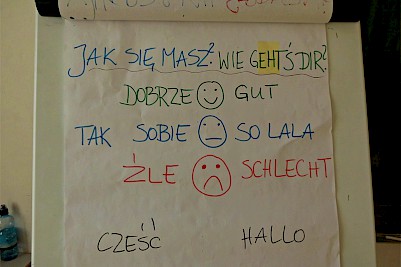 JAK SIĘ MASZ? WIE GEHT'S DIR?
DOBRZE GUT
TAK SOBIE SO LALA
ŹLE SCHLECHT
CZEŚĆ HALLO